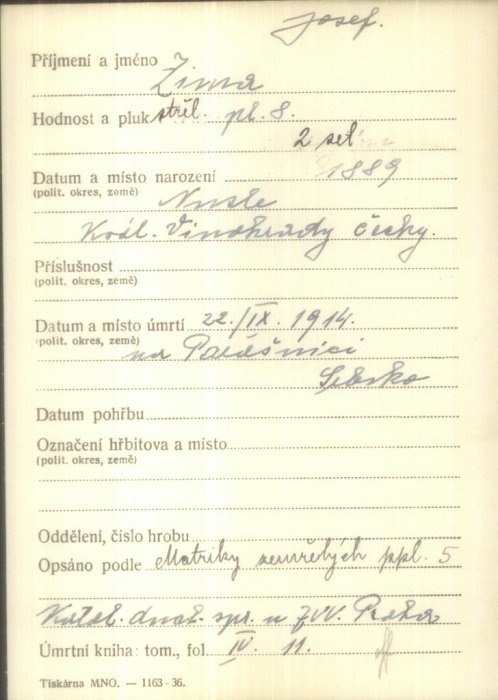 Josef.
Příjmení a jméno Zima
Hodnost a pluk střel. pl. 8.
2 set
Datum a místo narození 1889
(polit. okres, země) Nusle
Král. Vinohrady Čechy.
Příslušnost
(polit. okres, země)
Datum a místo úmrtí 22./IX. 1914.
(polit. okres, země) na Parašnici
Srbsko
Datum pohřbu
Označení hřbitova a místo
(polit. okres, země)
Oddělení, číslo hrobu
Opsáno podle Matriky zemřelých ppl. 5
Katol. duch. spr. u ZVV. Praha
Úmrtní kniha: tom., fol. IV. 11.
Tiskárna MNO. — 1163-36.